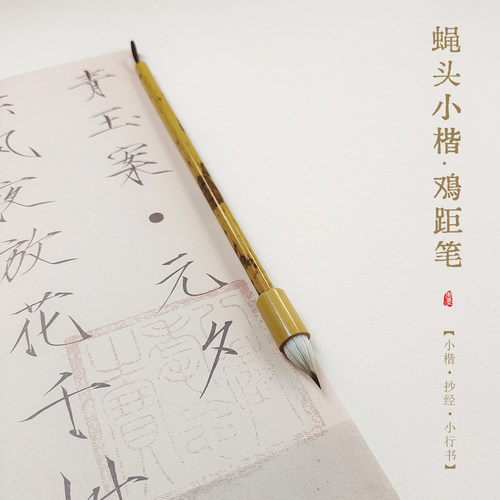 蝇头小楷·鳮距笔
【小楷·抄经·小行书】
青玉案·元夕
东风夜放花千树